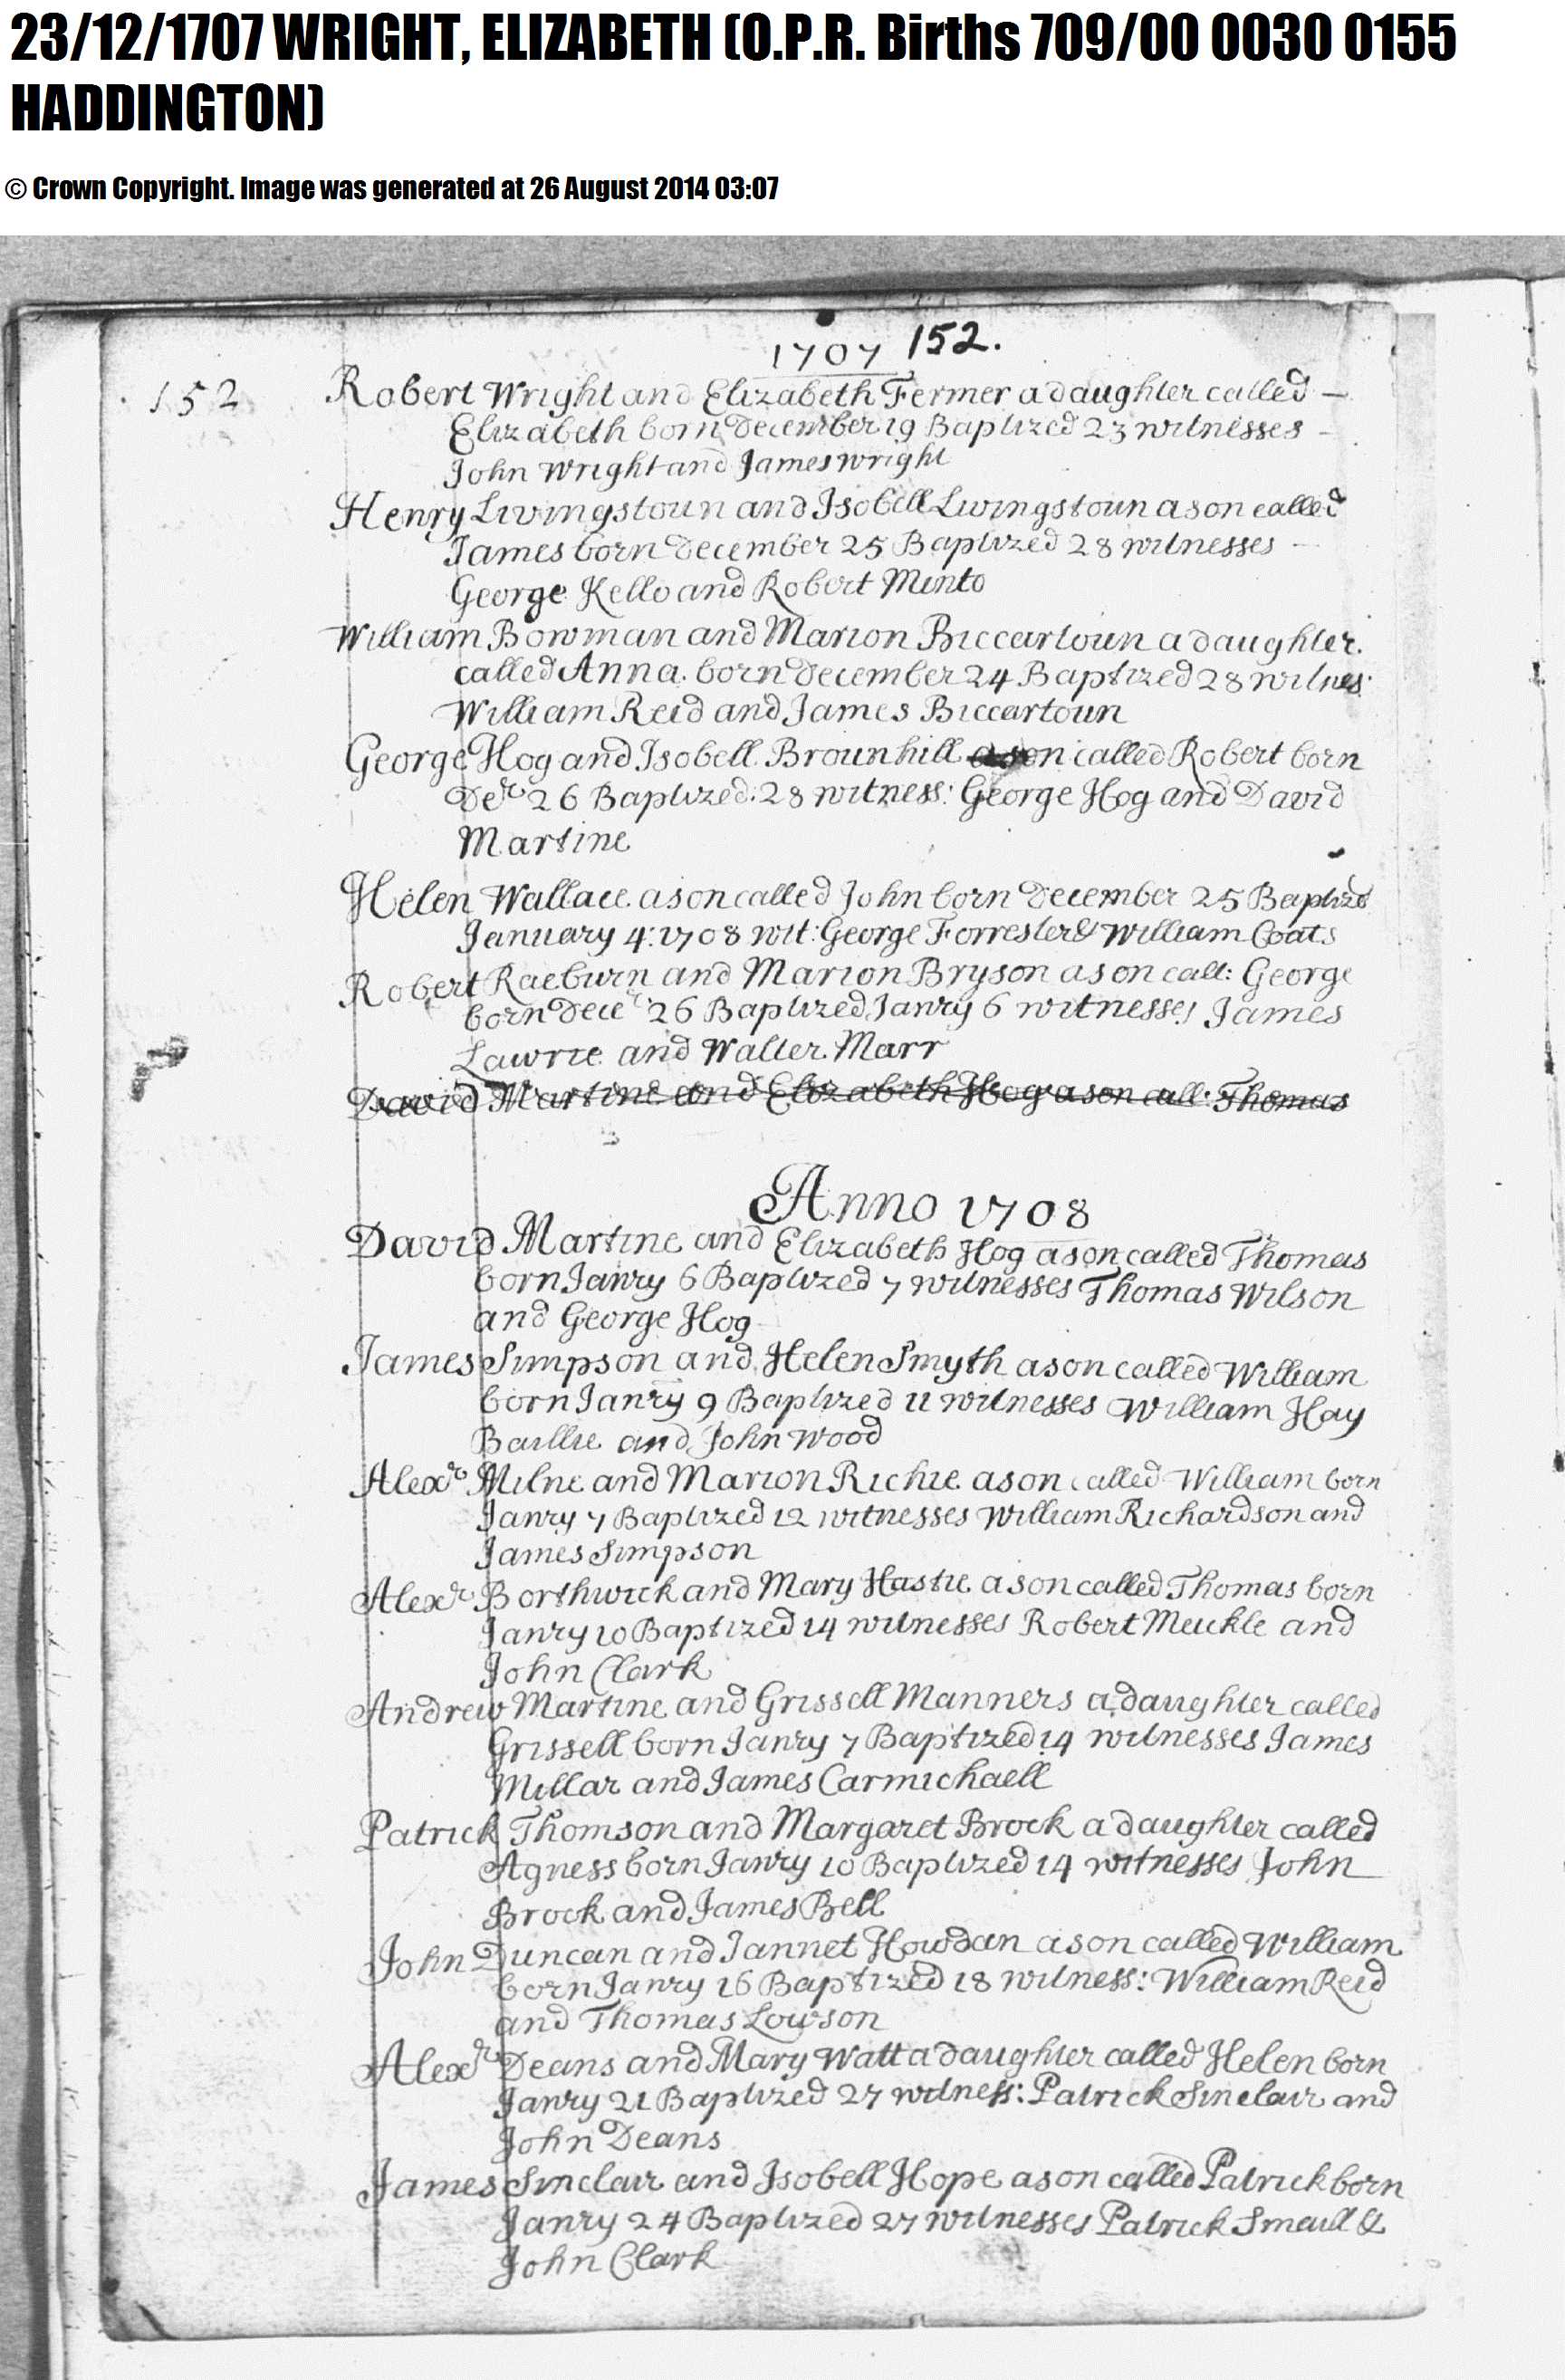 23/12/1707 WRIGHT, ELIZABETH (O.P.R. Births 709/00 0030 0155
HADDINGTON)
© Crown Copyright. Image was generated at 26 August 2014 03:07
1707 152.
152
Robert Wright and Elizabeth Fermer a daughter called —
Elizabeth born December 19 Baptized 23 witnesses –
John Wright and James Wright
Henry Livingstoun and Isobell Livingstoun a son called
James born December 25 Baptized 28 witnesses —
George Kello and Robert Minto
William Bowman and Marion Biccartoun a daughter.
called Anna born December 24 Baptized 28 witnes:
William Reid and James Biccartoun
George Hog and Isobell Brounhill a son called Robert born
Decr 26 Baptized 28 witness: George Hog and David
Martine
Helen Wallace a son called John born December 25 Baptizd
January 4: 1708 wit: George Forrester & William Coats
Robert Raeburn and Marion Bryson a son call: George
born Decer 26 Baptized Janry 6 witnesses James
Lawrie and Walter Marr
David Martine and Elizabeth Hog a son call: Thomas
Anno 1708
David Martine and Elizabeth Hog a son called Thomas
born Janry 6 Baptized 7 witnesses Thomas Wilson
and George Hog
James Simpson and Helen Smyth a son called William
born Janry 9 Baptized 11 witnesses William Hay
Baillie and John Wood
Alexr Milne and Marion Richie a son called William born
Janry 7 Baptized 12 witnesses William Richardson and
James Simpson
Alexr Borthwick and Mary Hastie a son called Thomas born
Janry 10 Baptized 14 witnesses Robert Meickle and
John Clark
Andrew Martine and Grissell Manners a daughter called
Grissell born Janry 7 Baptized 14 witnesses James
Millar and James Carmichaell
Patrick Thomson and Margaret Brock a daughter called
Agness born Janry 10 Baptized 14 witnesses John
Brock and James Bell
John Duncan and Jannet Howdan a son called William
born Janry 16 Baptized 18 witness: William Reid
and Thomas Lowson
Alexr Deans and Mary Watt a daughter called Helen born
Janry 21 Baptized 27 witness: Patrick Sinclair and
John Deans
James Sinclair and Isobell Hope a son called Patrick born
Janry 24 Baptized 27 witnesses Patrick Smaill &
John Clark